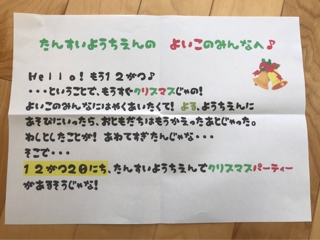 たんすいようちえんの よいこのみんなへ♪
Hello! もう12がつ♪
・・・ということで、もうすぐクリスマスじゃの!
よいこのみんなにはやくあいたくて! よる、ようちえんに
あそびにいったら、おともだちはもうかえったあとじゃった。
わしとしたことが! あわてすぎたんじゃな・・・
そこで・・・
12がつ20にち、たんすいようちえんでクリスマスパーティー
があるそうじゃな!